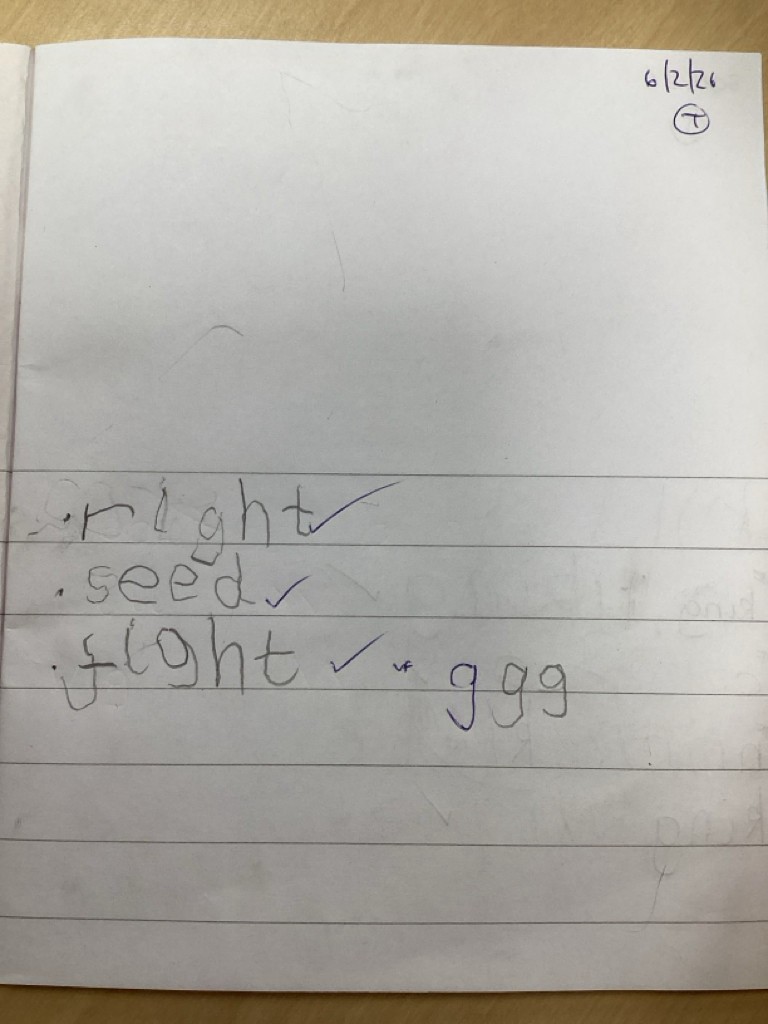 6/2/26
T
.right ✓
.seed ✓
.fight ✓ vf ggg